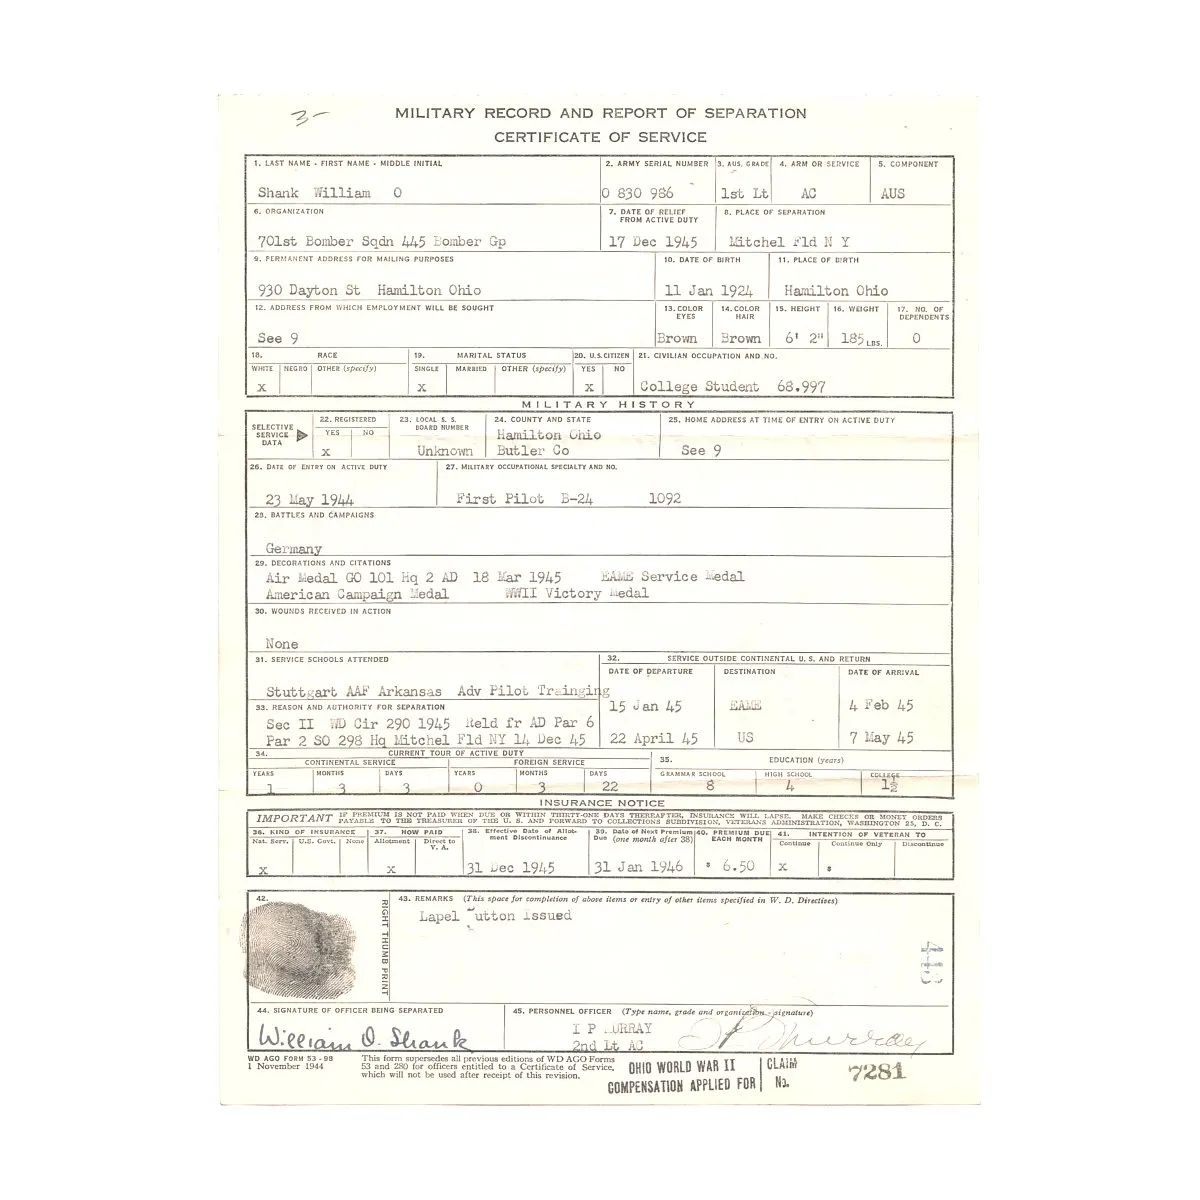 3-
MILITARY RECORD AND REPORT OF SEPARATION
CERTIFICATE OF SERVICE
1. LAST NAME - FIRST NAME - MIDDLE INITIAL
2. ARMY SERIAL NUMBER
3. AUS. GRADE
4. ARM OR SERVICE
5. COMPONENT
Shank William O
O 830 986
1st Lt
AC
AUS
6. ORGANIZATION
7. DATE OF RELIEF FROM ACTIVE DUTY
8. PLACE OF SEPARATION
701st Bomber Sqdn 445 Bomber Gp
17 Dec 1945
Mitchel Fld N Y
9. PERMANENT ADDRESS FOR MAILING PURPOSES
10. DATE OF BIRTH
11. PLACE OF BIRTH
930 Dayton St Hamilton Ohio
11 Jan 1924
Hamilton Ohio
12. ADDRESS FROM WHICH EMPLOYMENT WILL BE SOUGHT
13. COLOR EYES
14. COLOR HAIR
15. HEIGHT
16. WEIGHT
17. NO. OF DEPENDENTS
See 9
Brown
Brown
6' 2"
185 LBS.
0
18. RACE
19. MARITAL STATUS
20. U.S. CITIZEN
21. CIVILIAN OCCUPATION AND NO.
WHITE NEGRO OTHER (specify)
SINGLE MARRIED OTHER (specify)
YES NO
x
x
x
College Student 68.997
MILITARY HISTORY
SELECTIVE SERVICE DATA
22. REGISTERED
YES NO
23. LOCAL S. S. BOARD NUMBER
24. COUNTY AND STATE
25. HOME ADDRESS AT TIME OF ENTRY ON ACTIVE DUTY
x
Unknown
Hamilton Ohio
Butler Co
See 9
26. DATE OF ENTRY ON ACTIVE DUTY
27. MILITARY OCCUPATIONAL SPECIALTY AND NO.
23 May 1944
First Pilot B-24 1092
28. BATTLES AND CAMPAIGNS
Germany
29. DECORATIONS AND CITATIONS
Air Medal GO 101 Hq 2 AD 18 Mar 1945 EAME Service Medal
American Campaign Medal WWII Victory Medal
30. WOUNDS RECEIVED IN ACTION
None
31. SERVICE SCHOOLS ATTENDED
32. SERVICE OUTSIDE CONTINENTAL U. S. AND RETURN
DATE OF DEPARTURE
DESTINATION
DATE OF ARRIVAL
Stuttgart AAF Arkansas Adv Pilot Trainging
15 Jan 45
EAME
4 Feb 45
33. REASON AND AUTHORITY FOR SEPARATION
Sec II WD Cir 290 1945 Held fr AD Par 6
Par 2 SO 298 Hq Mitchel Fld NY 14 Dec 45
22 April 45
US
7 May 45
34. CURRENT TOUR OF ACTIVE DUTY
CONTINENTAL SERVICE
FOREIGN SERVICE
35. EDUCATION (years)
YEARS MONTHS DAYS YEARS MONTHS DAYS
GRAMMAR SCHOOL HIGH SCHOOL COLLEGE
1 3 3 0 3 22
8 4 1½
INSURANCE NOTICE
IMPORTANT
IF PREMIUM IS NOT PAID WHEN DUE OR WITHIN THIRTY-ONE DAYS THEREAFTER, INSURANCE WILL LAPSE. MAKE CHECKS OR MONEY ORDERS
PAYABLE TO THE TREASURER OF THE U. S. AND FORWARD TO COLLECTIONS SUBDIVISION, VETERANS ADMINISTRATION, WASHINGTON 25, D. C.
36. KIND OF INSURANCE
37. HOW PAID
38. Effective Date of Allotment Discontinuance
39. Date of Next Premium Due (one month after 38)
40. PREMIUM DUE EACH MONTH
41. INTENTION OF VETERAN TO
Nat. Serv. U.S. Govt. None
Allotment Direct to V. A.
Continue Continue Only Discontinue
x
x
31 Dec 1945
31 Jan 1946
$ 6.50
x
$
42.
RIGHT THUMB PRINT
43. REMARKS (This space for completion of above items or entry of other items specified in W. D. Directives)
Lapel Button Issued
44. SIGNATURE OF OFFICER BEING SEPARATED
45. PERSONNEL OFFICER (Type name, grade and organization - signature)
William O. Shank
I P MURRAY
2nd Lt AC
I P Murray
WD AGO FORM 53-98
1 November 1944
This form supersedes all previous editions of WD AGO Forms
53 and 280 for officers entitled to a Certificate of Service,
which will not be used after receipt of this revision.
OHIO WORLD WAR II
COMPENSATION APPLIED FOR
CLAIM
No.
7281